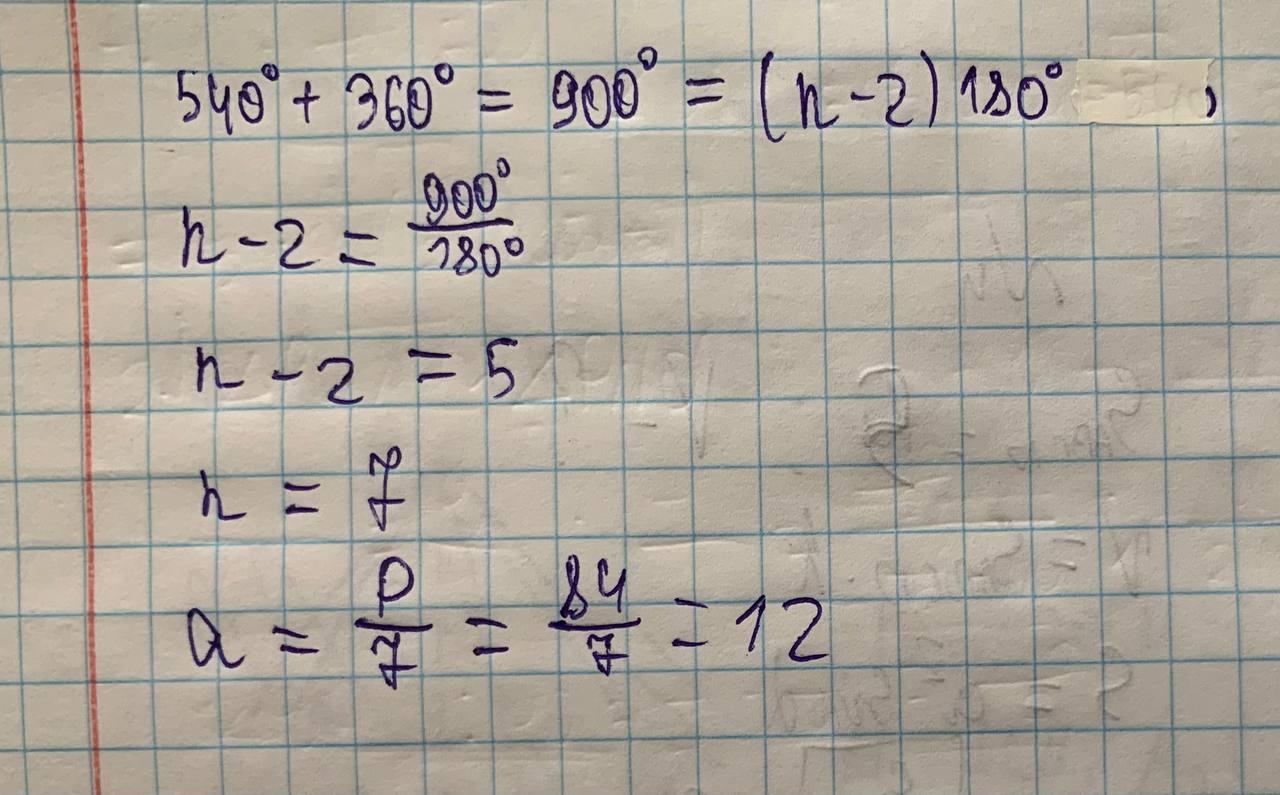 540° + 360° = 900° = (n-2) 180° ,
n - 2 = 900°/180°
n - 2 = 5
n = 7
a = P/7 = 84/7 = 12